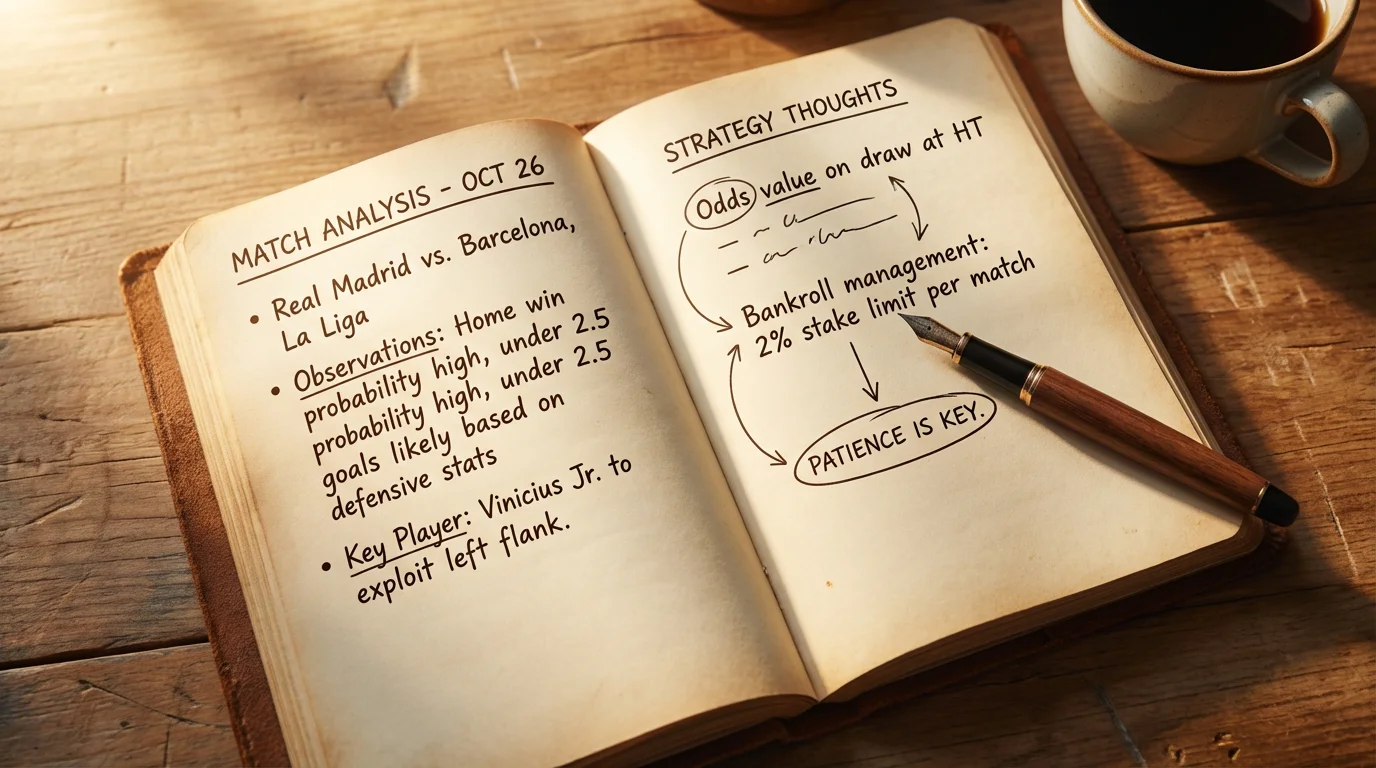 MATCH ANALYSIS - OCT 26
• Real Madrid vs. Barcelona,
La Liga
• Observations: Home win
probability high, under 2.5
probability high, under 2.5
goals likely based on
defensive stats
• Key Player: Vinicius Jr. to
exploit left flank.
STRATEGY THOUGHTS
Odds value on draw at HT
Bankroll management:
2% stake limit per match
PATIENCE IS KEY.